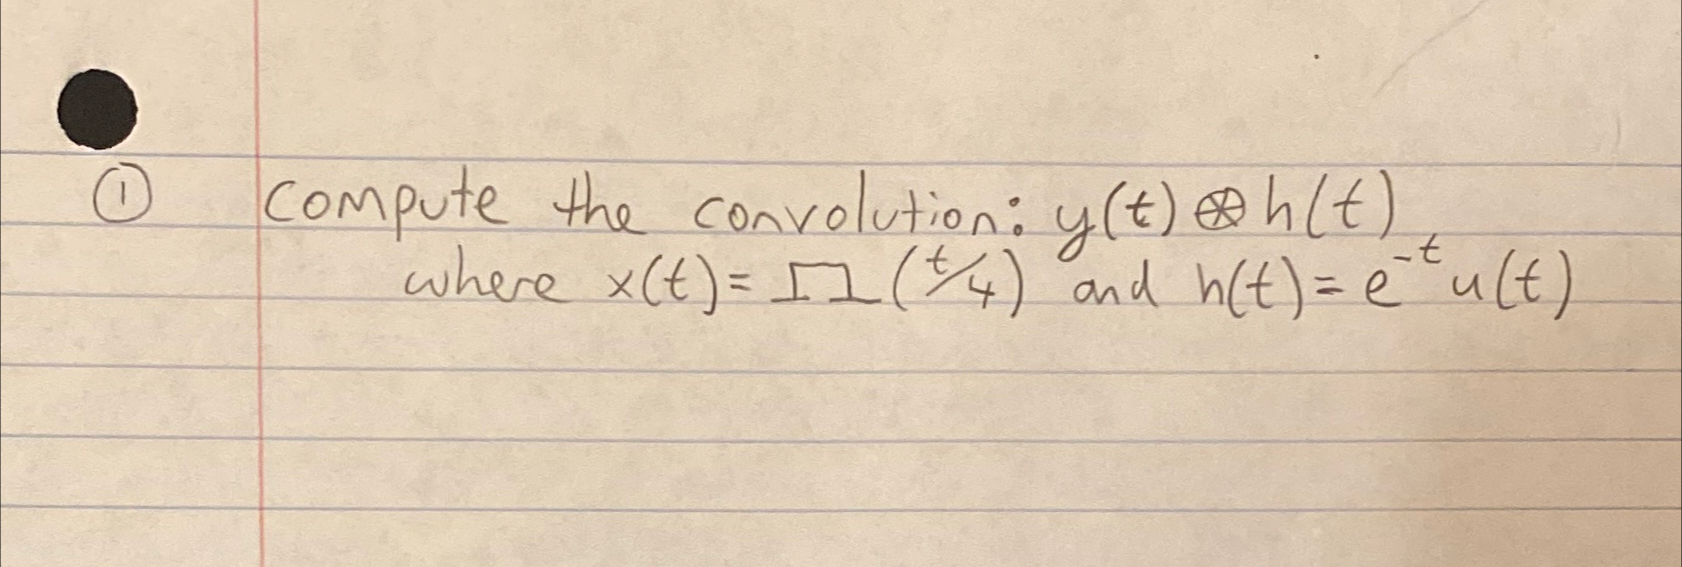 ① Compute the convolution: y(t) ⊛ h(t)
where x(t) = Π(t/4) and h(t) = e^{-t} u(t)